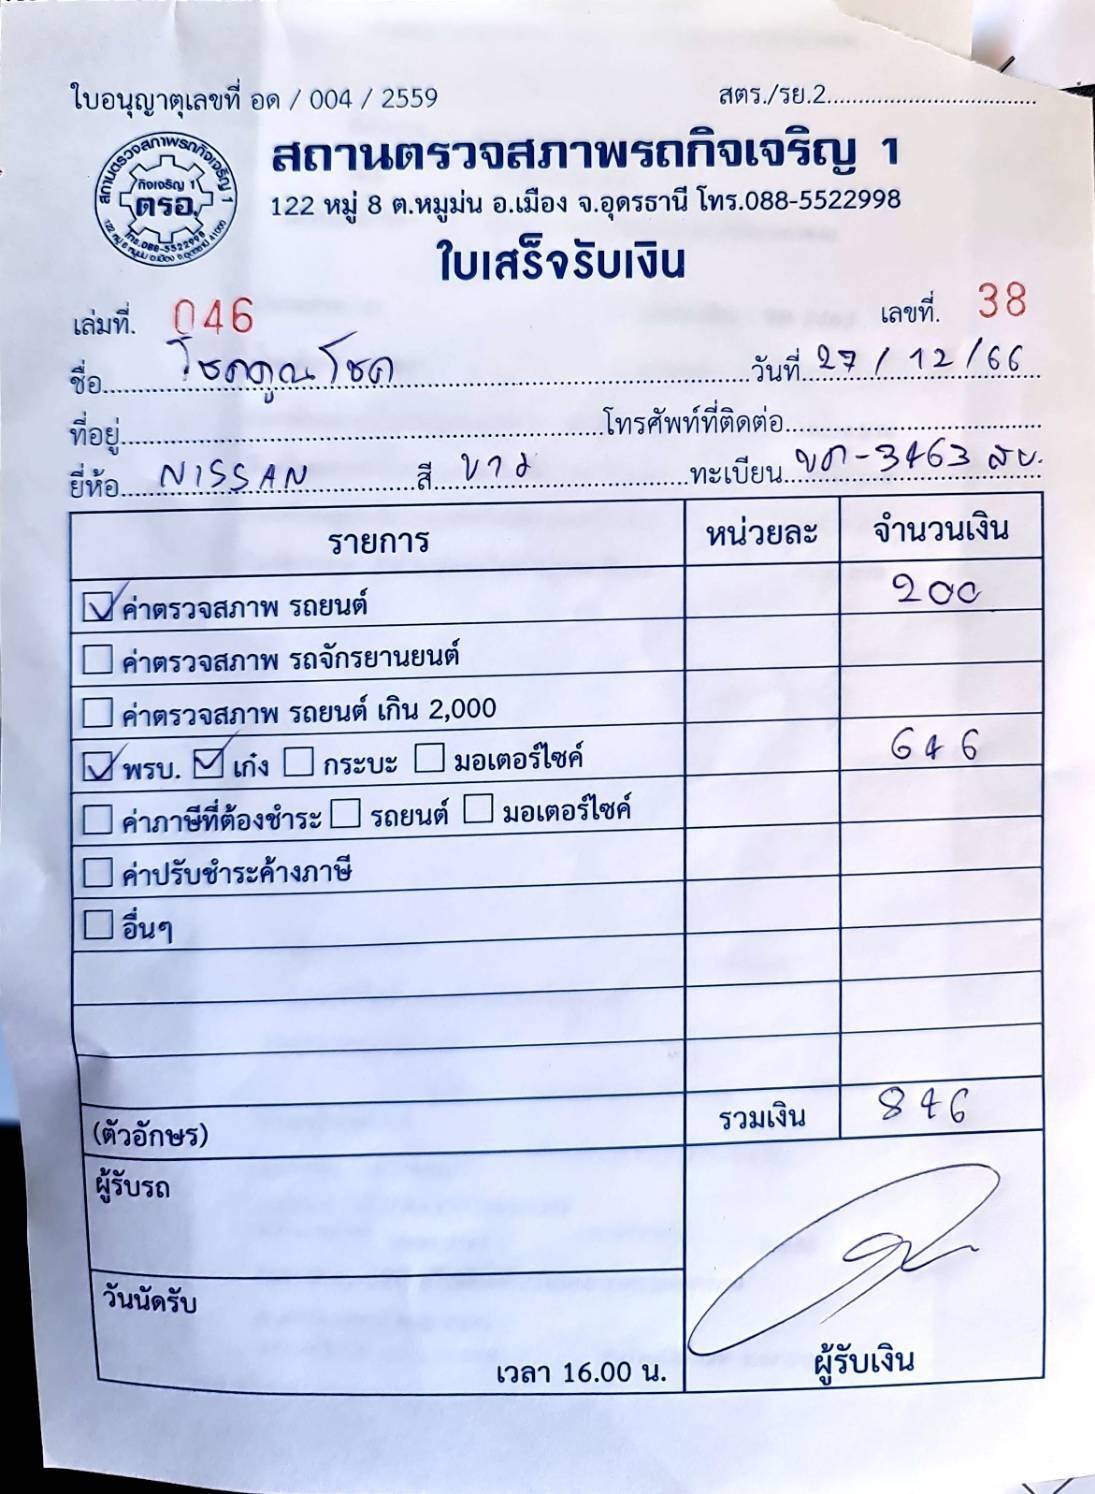 ใบอนุญาตเลขที่ อด / 004 / 2559 สตร./รย.2
สถานตรวจสภาพรถกิจเจริญ 1
122 หมู่ 8 ต.หมูม่น อ.เมือง จ.อุดรธานี โทร.088-5522998
สถานตรวจสภาพรถกิจเจริญ 1
กิจเจริญ 1
ตรอ.
โทร.088-5522998
ใบเสร็จรับเงิน
เล่มที่. 046 เลขที่. 38
ชื่อ โชคคูณโชค วันที่ 27 / 12 / 66
ที่อยู่ โทรศัพท์ที่ติดต่อ
ยี่ห้อ NISSAN สี ขาว ทะเบียน -3463
รายการ หน่วยละ จำนวนเงิน
ค่าตรวจสภาพ รถยนต์ 200
ค่าตรวจสภาพ รถจักรยานยนต์
ค่าตรวจสภาพ รถยนต์ เกิน 2,000
พรบ. เก๋ง กระบะ มอเตอร์ไซค์ 646
ค่าภาษีที่ต้องชำระ รถยนต์ มอเตอร์ไซค์
ค่าปรับชำระค้างภาษี
อื่นๆ
(ตัวอักษร) รวมเงิน 846
ผู้รับรถ
วันนัดรับ
เวลา 16.00 น. ผู้รับเงิน